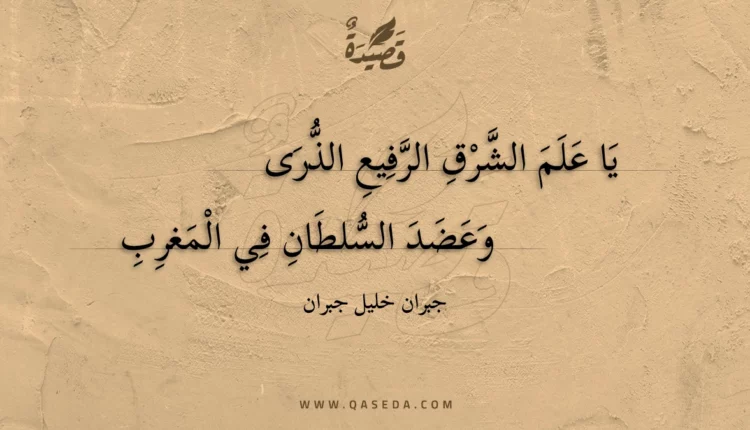 قَصِيْدَةٌ
يَا عَلَمَ الشَّرْقِ الرَّفِيعِ الذُّرَى
وَعَضَدَ السُّلطَانِ فِي الْمَغرِبِ
جبران خليل جبران
WWW.QASEDA.COM